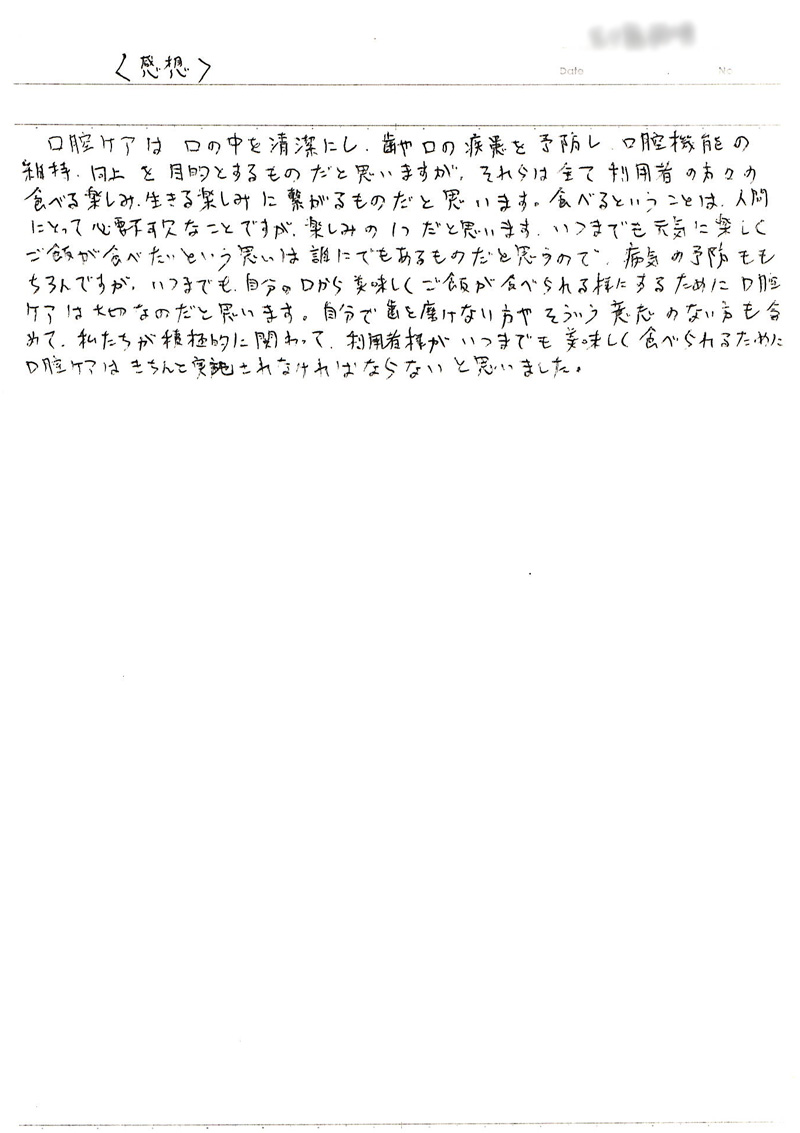 〈感想〉
Date . No
口腔ケアは 口の中を清潔にし、歯や口の疾患を予防し、口腔機能の
維持、向上を目的とするものだと思いますが、それらは全て利用者の方々の
食べる楽しみ、生きる楽しみに繋がるものだと思います。食べるということは、人間
にとって必要不可欠なことですが、楽しみの1つだと思います。いつまでも元気に楽しく
ご飯が食べたいという思いは誰にでもあるものだと思うので、病気の予防もも
ちろんですが、いつまでも、自分の口から美味しくご飯が食べられる様にするために口腔
ケアは大切なのだと思います。自分で歯を磨けない方やそういう意志のない方も含
めて、私たちが積極的に関わって、利用者様がいつまでも美味しく食べられるために
口腔ケアはきちんと実施されなければならないと思いました。